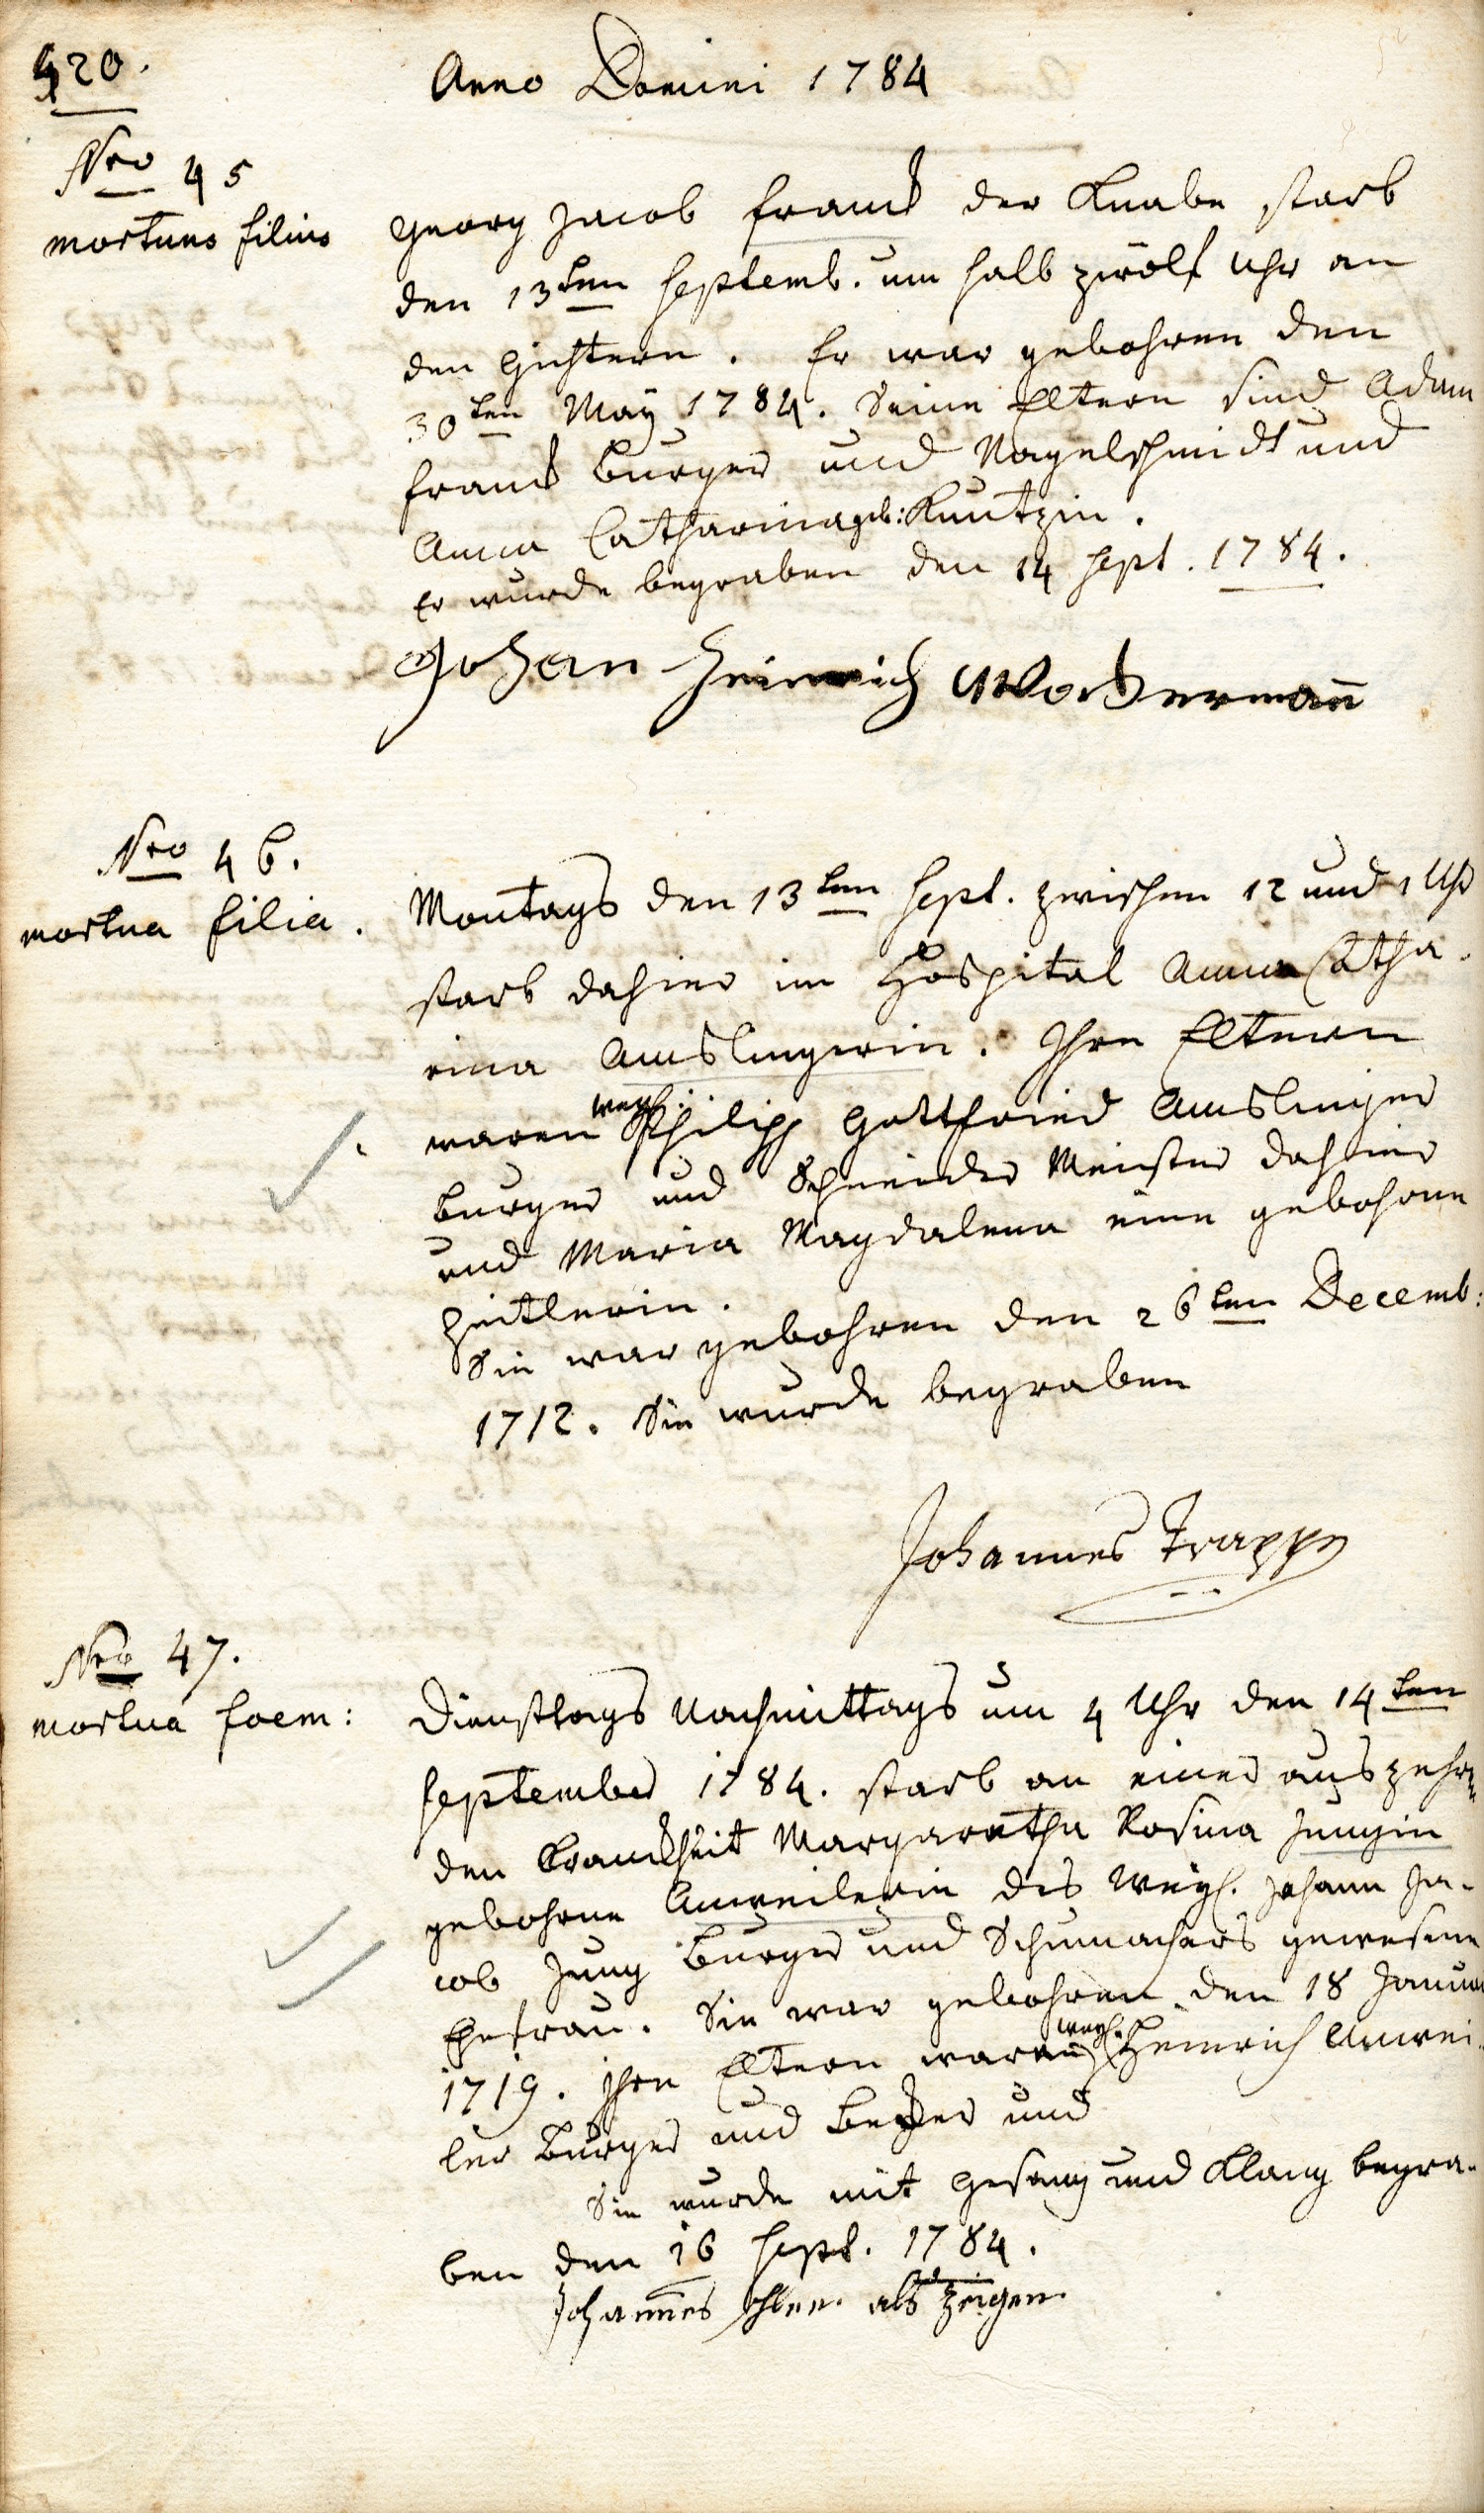 420.
Anno Domini 1784
Nro 45
mortuus filius
Georg Jacob Franck der Knabe starb
den 13ten Septemb. um halb zwölf Uhr an
den Gichtern. Er war gebohren den
30ten Maÿ 1784. Seine Eltern sind Adam
Franck Burger und Nagelschmidt und
Anna Catharina geb: Kuntzin.
Er wurde begraben den 14 Sept. 1784.
Johan Heinrich Wockermann
Nro 46.
mortua filia.
Montags den 13ten Sept. zwischen 12 und 1 Uhr
starb dahier im Hospital Anna Catha-
rina Amslingerin. Ihre Eltern
waren weyl. Philipp Gottfried Amslinger
Burger und Schneider Meister dahier
und Maria Magdalena eine gebohrne
Zeitlerin.
Sie war gebohren den 26ten Decemb:
1712. Sie wurde begraben
Johannes Trapp
Nro 47.
mortua foem:
Dienstags Nachmittags um 4 Uhr den 14ten
September 1784. starb an einer auszehren
den Kranckheit Margaretha Rosina Jungin
gebohrne Anweilerin des Weyl. Johann Ja-
cob Jung Burger und Schumachers gewesene
Ehefrau. Sie war gebohren den 18 Januar
1719. Ihre Eltern waren weyl. Heinrich Anwei-
ler Burger und Becker und
Sie wurde mit Gesang und Klang begra-
ben den 16 Sept. 1784.
Johannes als Zeigen.